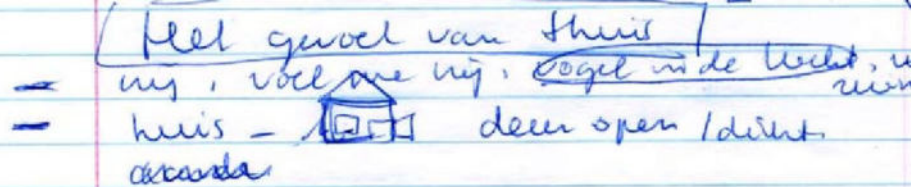 Het gevoel van thuis
- vrij, voel me vrij, vogel in de lucht,
- huis - deur open / dicht